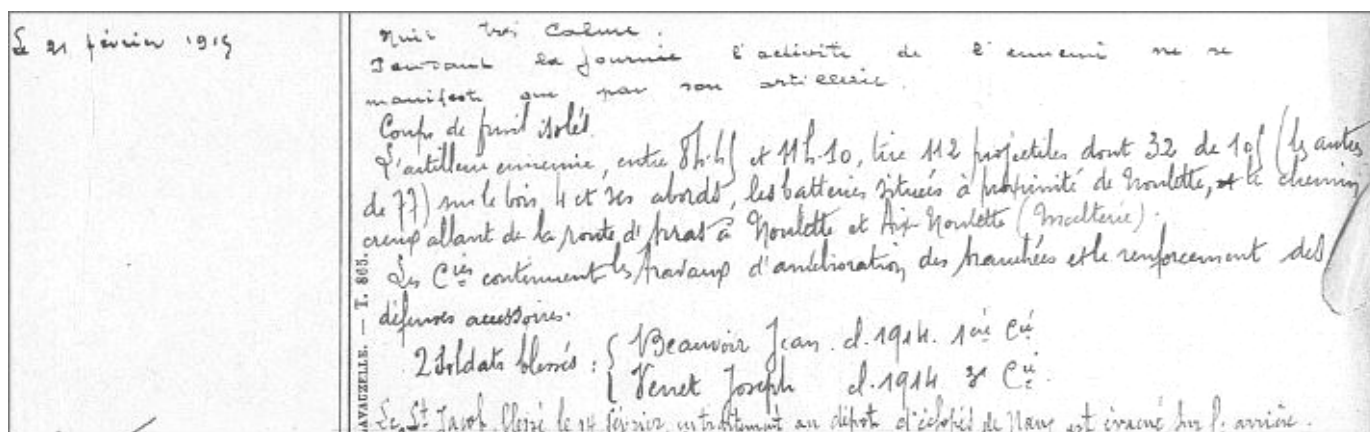 Le 21 février 1915
Nuit très Calme.
Pendant la journée l'activité de l'ennemi ne se
manifeste que par son artillerie.
Coups de fusil isolés.
L'artillerie ennemie, entre 8h.45 et 11h.10, tire 112 projectiles dont 32 de 105 (les autres
de 77) sur le bois 4 et ses abords, les batteries situées à proximité de Noulette, et le chemin
creux allant de la route d'Arras à Noulette et Aix-Noulette (Malterie).
Les Cies continuent les travaux d'amélioration des tranchées et le renforcement des
défenses accessoires.
2 soldats blessés : { Beauvoir Jean. cl. 1914. 1ère Cie
Verret Joseph cl. 1914 3e Cie
Le St Jacob, blessé le 14 février, en traitement au dépôt d'éclopés de est évacué sur l'arrière.
LAVAUZELLE. — T. 865.